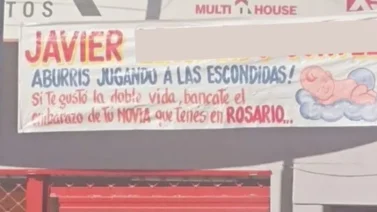 TOS
MULTI HOUSE
JAVIER
ABURRIS JUGANDO A LAS ESCONDIDAS!
Si te gustó la doble vida, bancate el
embarazo de tu NOVIA que tenés en ROSARIO...